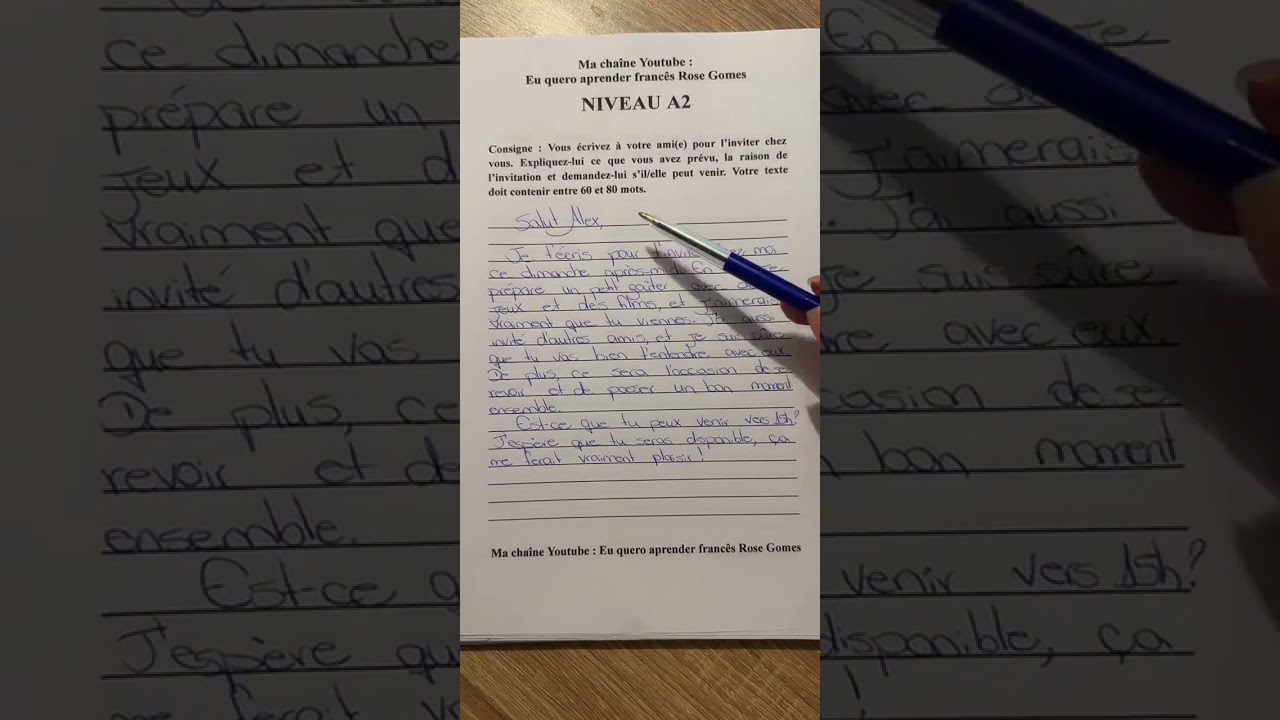 Ma chaîne Youtube :
Eu quero aprender francês Rose Gomes
NIVEAU A2
Consigne : Vous écrivez à votre ami(e) pour l'inviter chez
vous. Expliquez-lui ce que vous avez prévu, la raison de
l'invitation et demandez-lui s'il/elle peut venir. Votre texte
doit contenir entre 60 et 80 mots.
Salut Alex,
Je t'écris pour moi
ce dimanche après-midi. En Je
prépare un petit goûter avec
jeux et des films, et j'aimerais
vraiment que tu viennes. J'ai aussi
invité d'autres amis, et je suis sûre
que tu vas bien t'entendre avec eux.
De plus, ce sera l'occasion de se
revoir et de passer un bon moment
ensemble.
Est-ce que tu peux venir vers 15h?
J'espère que tu seras disponible, ça
me ferait vraiment plaisir !
Ma chaîne Youtube : Eu quero aprender francês Rose Gomes